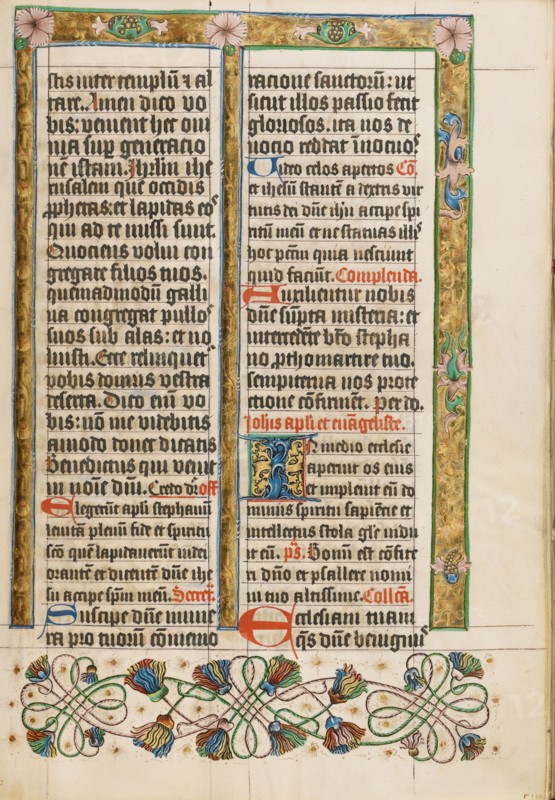 ſtis inter templū ⁊ al
tare. Amen dico vo
bis: venient hec om
nia sup generatio
nē istam. Jhrlm ihe
rusalem que occidis
ꝓphetas: et lapidas eoſ
qui ad te missi sunt.
Quociens volui con
gregare filios tuos.
quemadmodū galli
na congregat pullo
suos sub alas: et no
luisti. Ecce relinquet
vobis domus vestra
deserta. Dico em̄ vo
bis: nō me videbitis
amodo donec dicatis
Benedictus qui venit
in noīe dñi. Credo
Elegerūt apłi stephanū
leuitā plenū fide et spiritu
scō quē lapidauerūt iudei
orantē et dicentē dñe ihe
su accipe spm̄ meū. Secret.
Suscipe dñe mune
ra pro tuorū cōmemo
racione sanctorū: ut
sicut illos passio fecit
gloriosos. ita nos de
uocio reddat inocuoſ
Video celos apertos Cō.
et ihesū stantē a dextris vir
tutis dei dñe ihu accipe spi
ritū meū et ne statuas illiſ
hoc pctm̄ quia nesciunt
quid faciūt. Complenda.
Auxilientur nobis
dñe sūpta misteria: et
intercedēte bt̄o stepha
no ꝓthomartire tuo.
sempiterna nos prote
ctione cōfirmēt. Per do.
Johis apłi et euāgeliste.
In medio ecclesie
aperuit os eius
et impleuit eū do
minus spiritu sapiētie et
intellectus stola glīe indu
it eū. pſ. Bonū est cōfite
ri dño et psallere nomi
ni tuo altissime. Collcā.
Ecclesiam tuam
qs dñe benignuſ